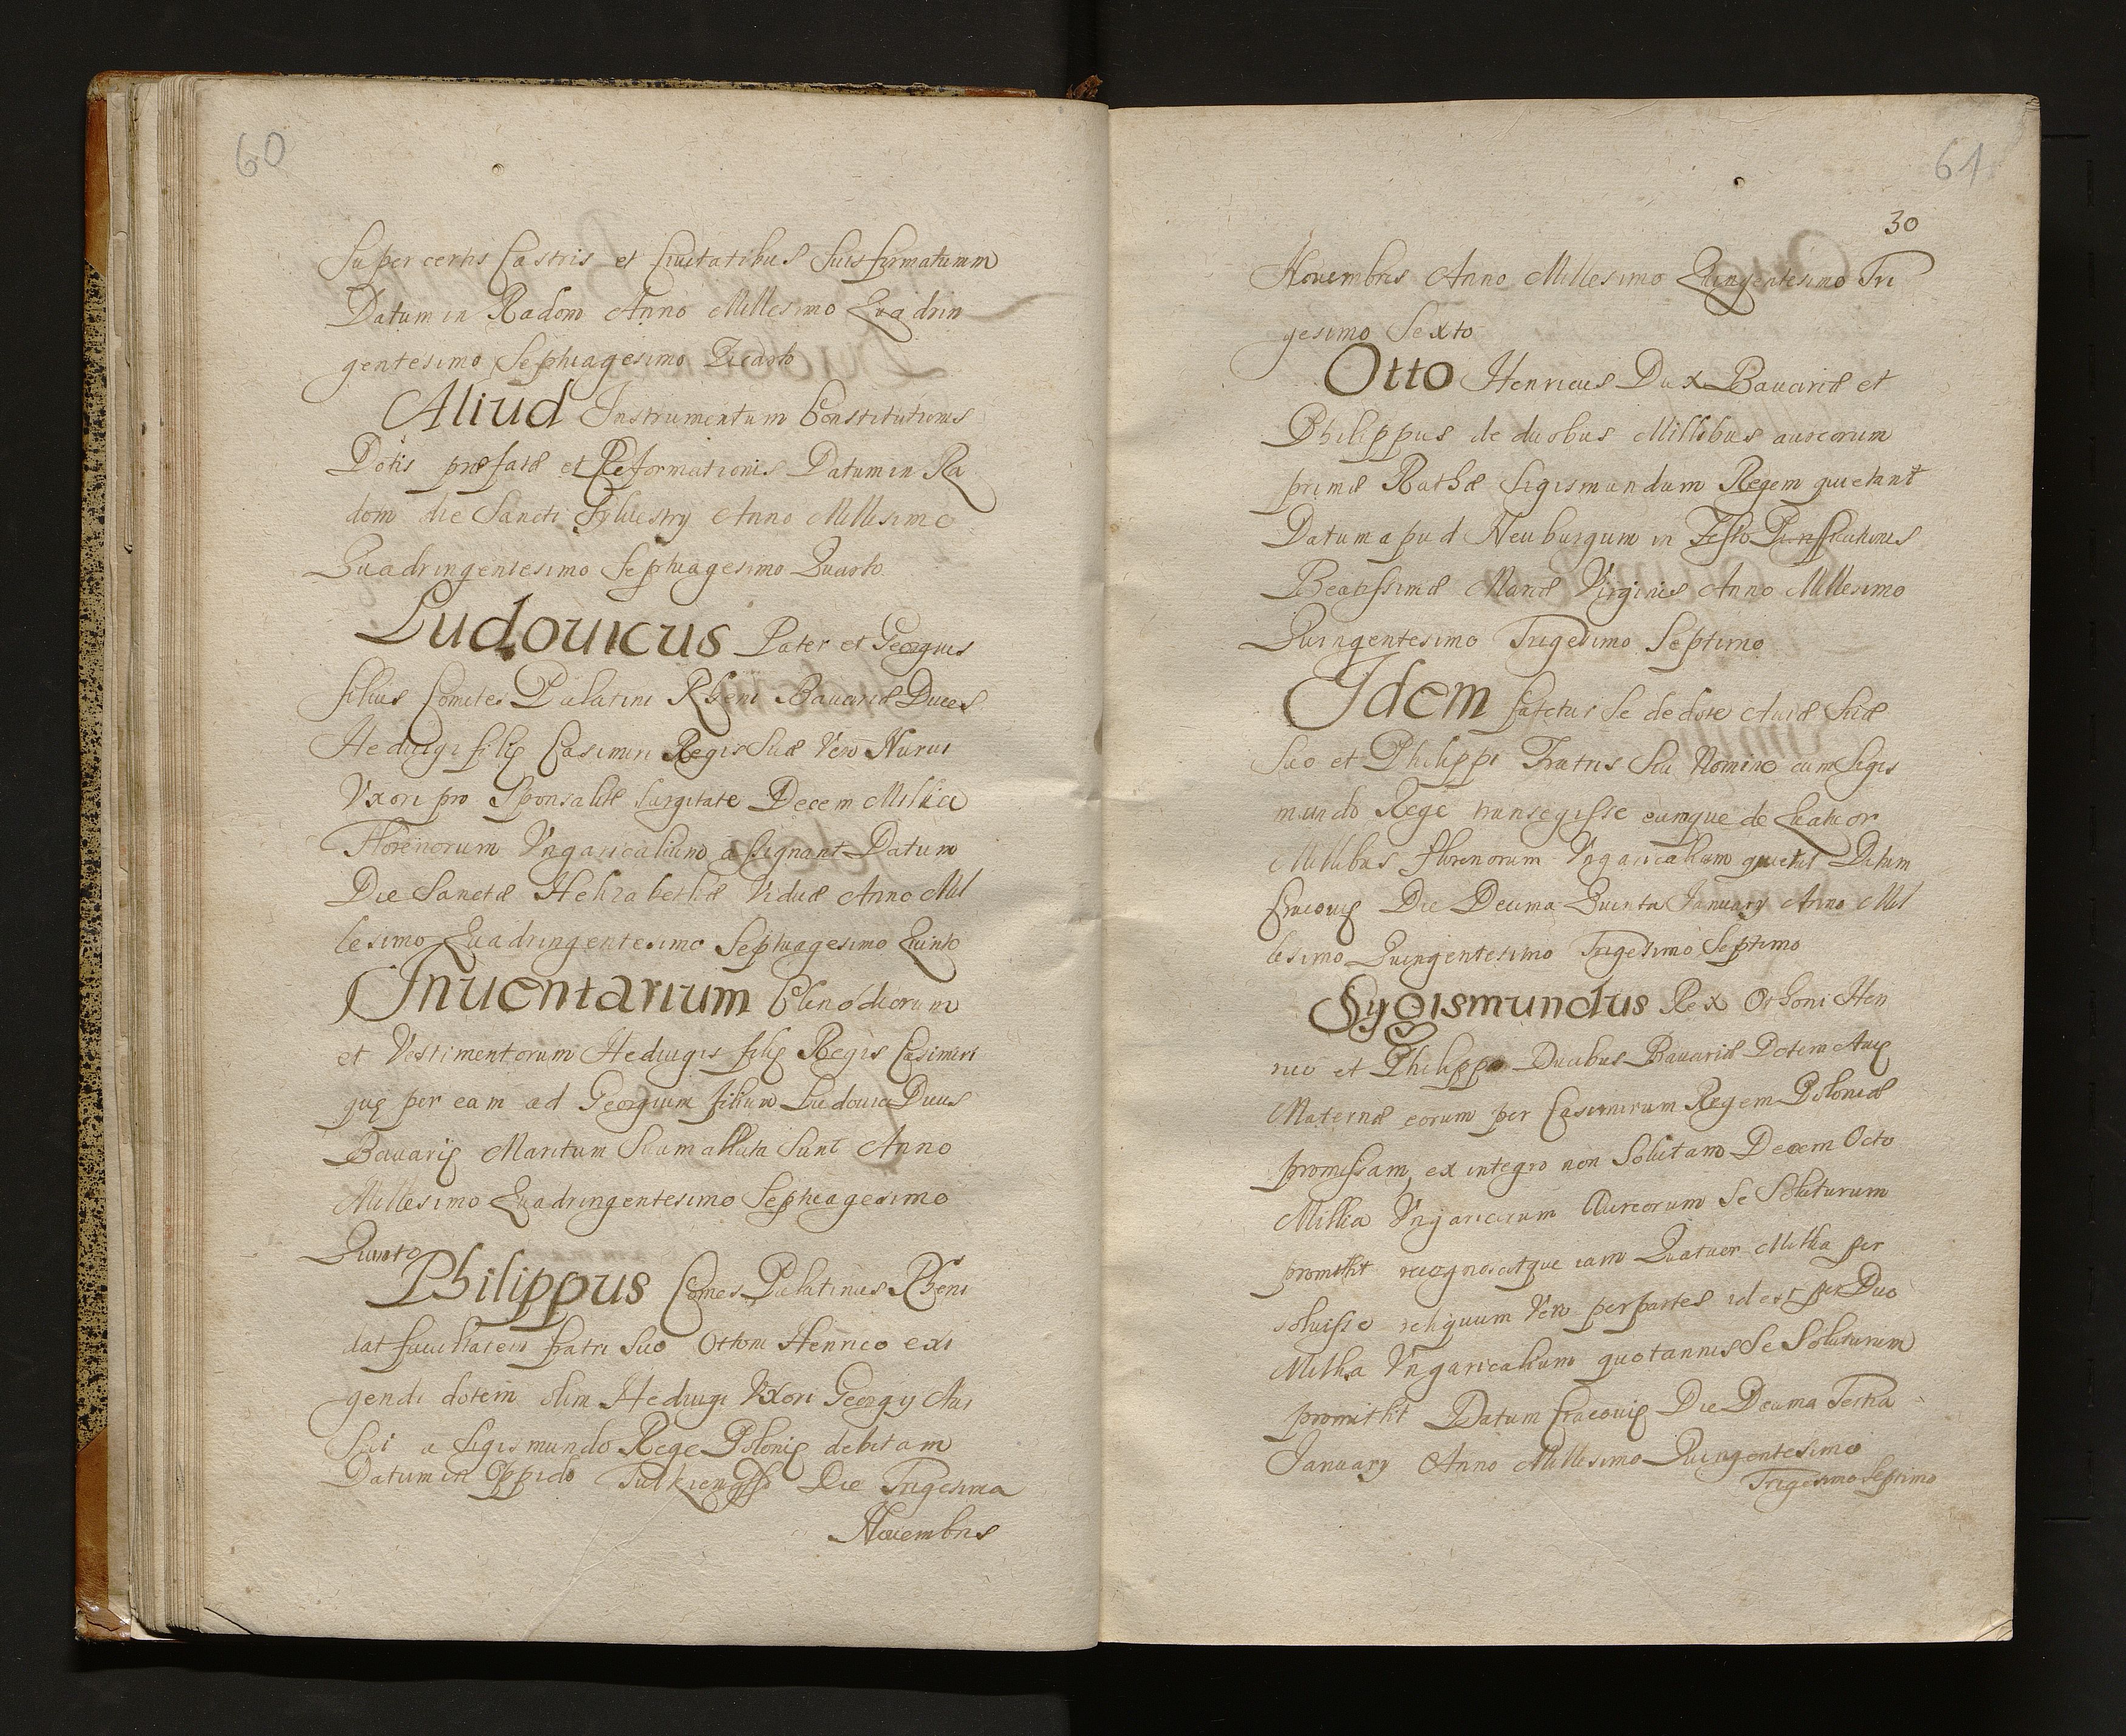 60
Super certis Castris et Ciuitatibus Suis firmatumm
Datum in Radom Anno Millesimo Quadrin
gentesimo Septuagesimo Quarto
Aliud Instrumentum Constitutionis
Dotis præfatæ et Reformationis Datum in Ra
dom die Sancti Syluestry Anno Millesimo
Quadringentesimo Septuagesimo Quarto
Ludouicus Pater et Georgius
filius Comites Palatini Rheni Bauariæ Duces
Heduigi filię Casimiri Regis Suæ Vero Nurui
Vxori pro Sponsalit Largitate Decem Millia
Florenorum Vngaricalium assignant Datum
Die Sanctæ Helizabethæ Viduæ Anno Mil
lesimo Quadringentesimo Septuagesimo Quinto
Inuentarium Clenodiorum
et Vestimentorum Heduigis filię Regis Casimiri
quę per eam ad Georgium filium Ludouici Ducis
Bauarię Maritum Suum allata Sunt Anno
Millesimo Quadringentesimo Septuagesimo
Quinto
Philippus Comes Palatinus Rheni
dat facultatem fratri Suo Ottoni Henrico exi
gendi dotem olim Heduigi Vxori Georgy Aui
Sui a Sigismundo Rege Polonię debitam
Datum in Oppido Die Trigesima
Nouembris
61
30
Nouembris Anno Millesimo Quingentesimo Tri
gesimo Sexto
Otto Henricus Dux Bauariæ et
Philippus de duobus Millibus aureorum
primæ Rathæ Sigismundum Regem quietant
Datum apud Neuburgum in Festo Purificationis
Beatissimæ Mariæ Virginis Anno Millesimo
Quingentesimo Trigesimo Septimo
Idem fatetur Se de dote Auiæ Suæ
Suo et Philippi Fratris Sui Nomine cum Sigis
mundo Rege transegisse eumque de Quatuor
Millibus florenorum Vngaricalium quietat Datum
Cracouię Die Decima Quinta January Anno Mil
lesimo Quingentesimo Trigesimo Septimo
Sygismundus Rex Othoni Hen
rico et Philippo Ducibus Bauariæ Dotem Auię
Maternæ eorum per Casimirum Regem Poloniæ
promissam, ex integro non Solutam Decem Octo
Millia Vngaricarum Aureorum Se Soluturum
promittit recognoscitque iam Quatuor Millia per
soluisse reliquum Vero per partes id est per Duo
Millia Vngaricalium quotannis Se Soluturum
promittit Datum Cracouię Die Decima Tertia
January Anno Millesimo Quingentesimo
Trigesimo Septimo